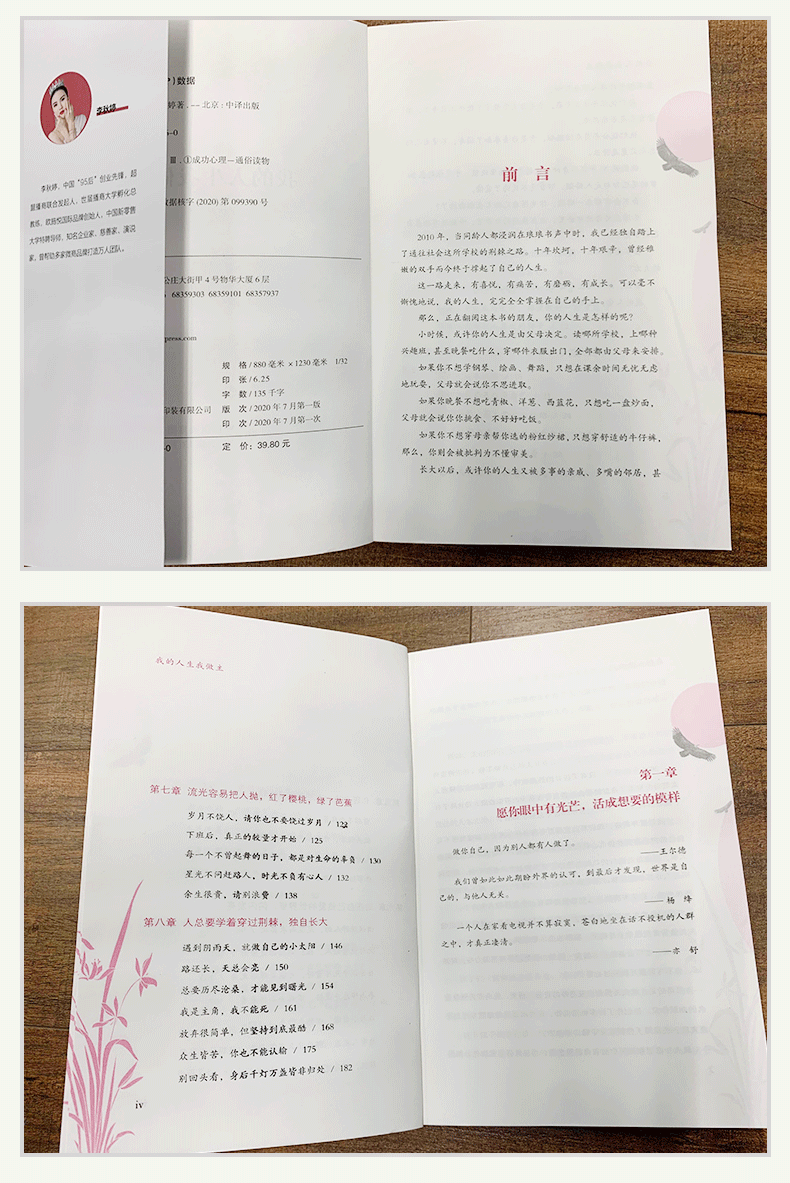 李秋婷
李秋婷，中国“95后”创业先锋，超
级播商联合发起人，世薇播商大学孵化总
教练，欧施悦国际品牌创始人，中国新零售
大学特聘导师，知名企业家、慈善家、演说
家，曾帮助多家微商品牌打造万人团队。
）数据
婷著．--北京：中译出版
-0
Ⅲ．①成功心理—通俗读物
数据核字 (2020) 第 099390 号
公庄大街甲 4 号物华大厦 6 层
68359303 68359101 68357937
press.com
规 格 / 880 毫米 × 1230 毫米 1/32
印 张 / 6.25
字 数 / 135 千字
印装有限公司 版 次 / 2020 年 7 月第一版
印 次 / 2020 年 7 月第一次
-0 定 价：39.80 元
前 言
2010 年，当同龄人都浸润在琅琅书声中时，我已经独自踏上
了通往社会这所学校的荆棘之路。十年坎坷，十年艰辛，曾经稚
嫩的双手而今终于撑起了自己的人生。
这一路走来，有喜悦，有痛苦，有磨砺，有成长。可以毫不
惭愧地说，我的人生，完完全全掌握在自己的手上。
那么，正在翻阅这本书的朋友，你的人生是怎样的呢？
小时候，或许你的人生是由父母决定。读哪所学校，上哪种
兴趣班，甚至晚餐吃什么，穿哪件衣服出门，全部都由父母来安排。
如果你不想学钢琴、绘画、舞蹈，只想在课余时间无忧无虑
地玩耍，父母就会说你不思进取。
如果你晚餐不想吃青椒、洋葱、西蓝花，只想吃一盘炒面，
父母就会说你你挑食、不好好吃饭。
如果你不想穿母亲帮你选的粉红纱裙，只想穿舒适的牛仔裤，
那么，你则会被批判为不懂审美。
长大以后，或许你的人生又被多事的亲戚、多嘴的邻居，甚
我的人生我做主
第七章 流光容易把人抛，红了樱桃，绿了芭蕉
岁月不饶人，请你也不要饶过岁月 / 122
下班后，真正的较量才开始 / 125
每一个不曾起舞的日子，都是对生命的辜负 / 130
星光不问赶路人，时光不负有心人 / 132
余生很贵，请别浪费 / 138
第八章 人总要学着穿过荆棘，独自长大
遇到阴雨天，就做自己的小太阳 / 146
路还长，天总会亮 / 150
总要历尽沧桑，才能见到曙光 / 154
我是主角，我不能死 / 161
放弃很简单，但坚持到底最酷 / 168
众生皆苦，你也不能认输 / 175
别回头看，身后千灯万盏皆非归处 / 182
iv
第一章
愿你眼中有光芒，活成想要的模样
做你自己，因为别人都有人做了。
——王尔德
我们曾如此如此期盼外界的认可，到最后才发现，世界是自
己的，与他人无关。
——杨 绛
一个人在家看电视并不算寂寞，苍白地坐在话不投机的人群
之中，才真正凄清。
——亦 舒